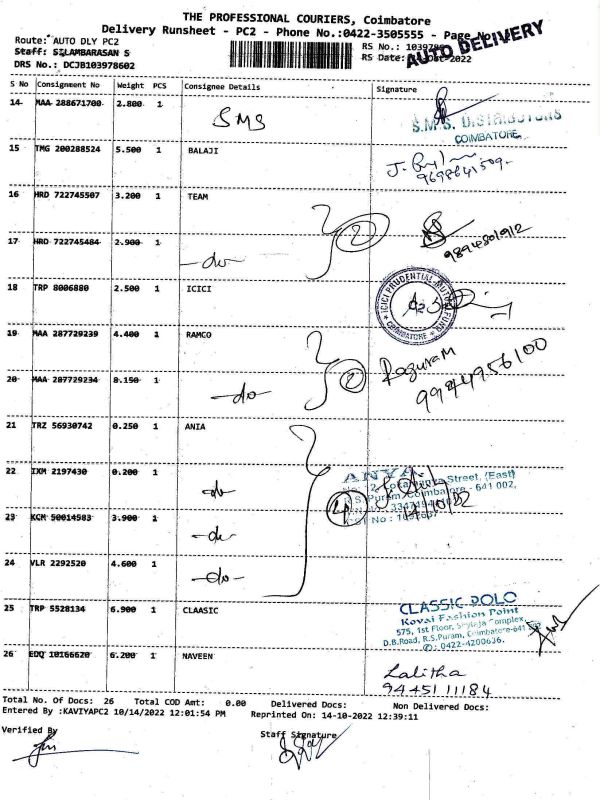 THE PROFESSIONAL COURIERS, Coimbatore
Delivery Runsheet - PC2 - Phone No.:0422-3505555 - Page No
Route: AUTO DLY PC2
RS No.: 1039786
AUTO DELIVERY
Staff: SILAMBARASAN S
RS Date: 2022
DRS No.: DCJB103978602
S No Consignment No Weight PCS Consignee Details Signature
14 MAA 288671700 2.800 1 SMS
S.M.S. DISTRIBUTORS
COIMBATORE
15 TMG 200288524 5.500 1 BALAJI
9698641509
16 HRD 722745507 3.200 1 TEAM
2
9894801912
17 HRD 722745484 2.900 1 -do-
18 TRP 8006880 2.500 1 ICICI
ICICI PRUDENTIAL MUTUAL FUND
COIMBATORE
19 MAA 287729239 4.400 1 RAMCO
Raguram
99944956100
20 MAA 287729234 8.150 1 -do-
2
21 TRZ 56930742 0.250 1 ANIA
22 IXM 2197430 0.200 1 -do-
ANYA
Street, (East)
R.S. Puram, Coimbatore - 641 002,
4
14/10/22
23 KCM 50014583 3.900 1 -do-
24 VLR 2292520 4.600 1 -do-
25 TRP 5528134 6.900 1 CLAASIC
CLASSIC POLO
Kovai Fashion Point
575, 1st Floor, Srylaja Complex,
D.B.Road, R.S.Puram, Coimbatore-641
: 0422-4200636.
26 EDQ 10166620 6.200 1 NAVEEN
Lalitha
94451 11184
Total No. Of Docs: 26 Total COD Amt: 0.00 Delivered Docs: Non Delivered Docs:
Entered By :KAVIYAPC2 10/14/2022 12:01:54 PM Reprinted On: 14-10-2022 12:39:11
Verified By
Staff Signature